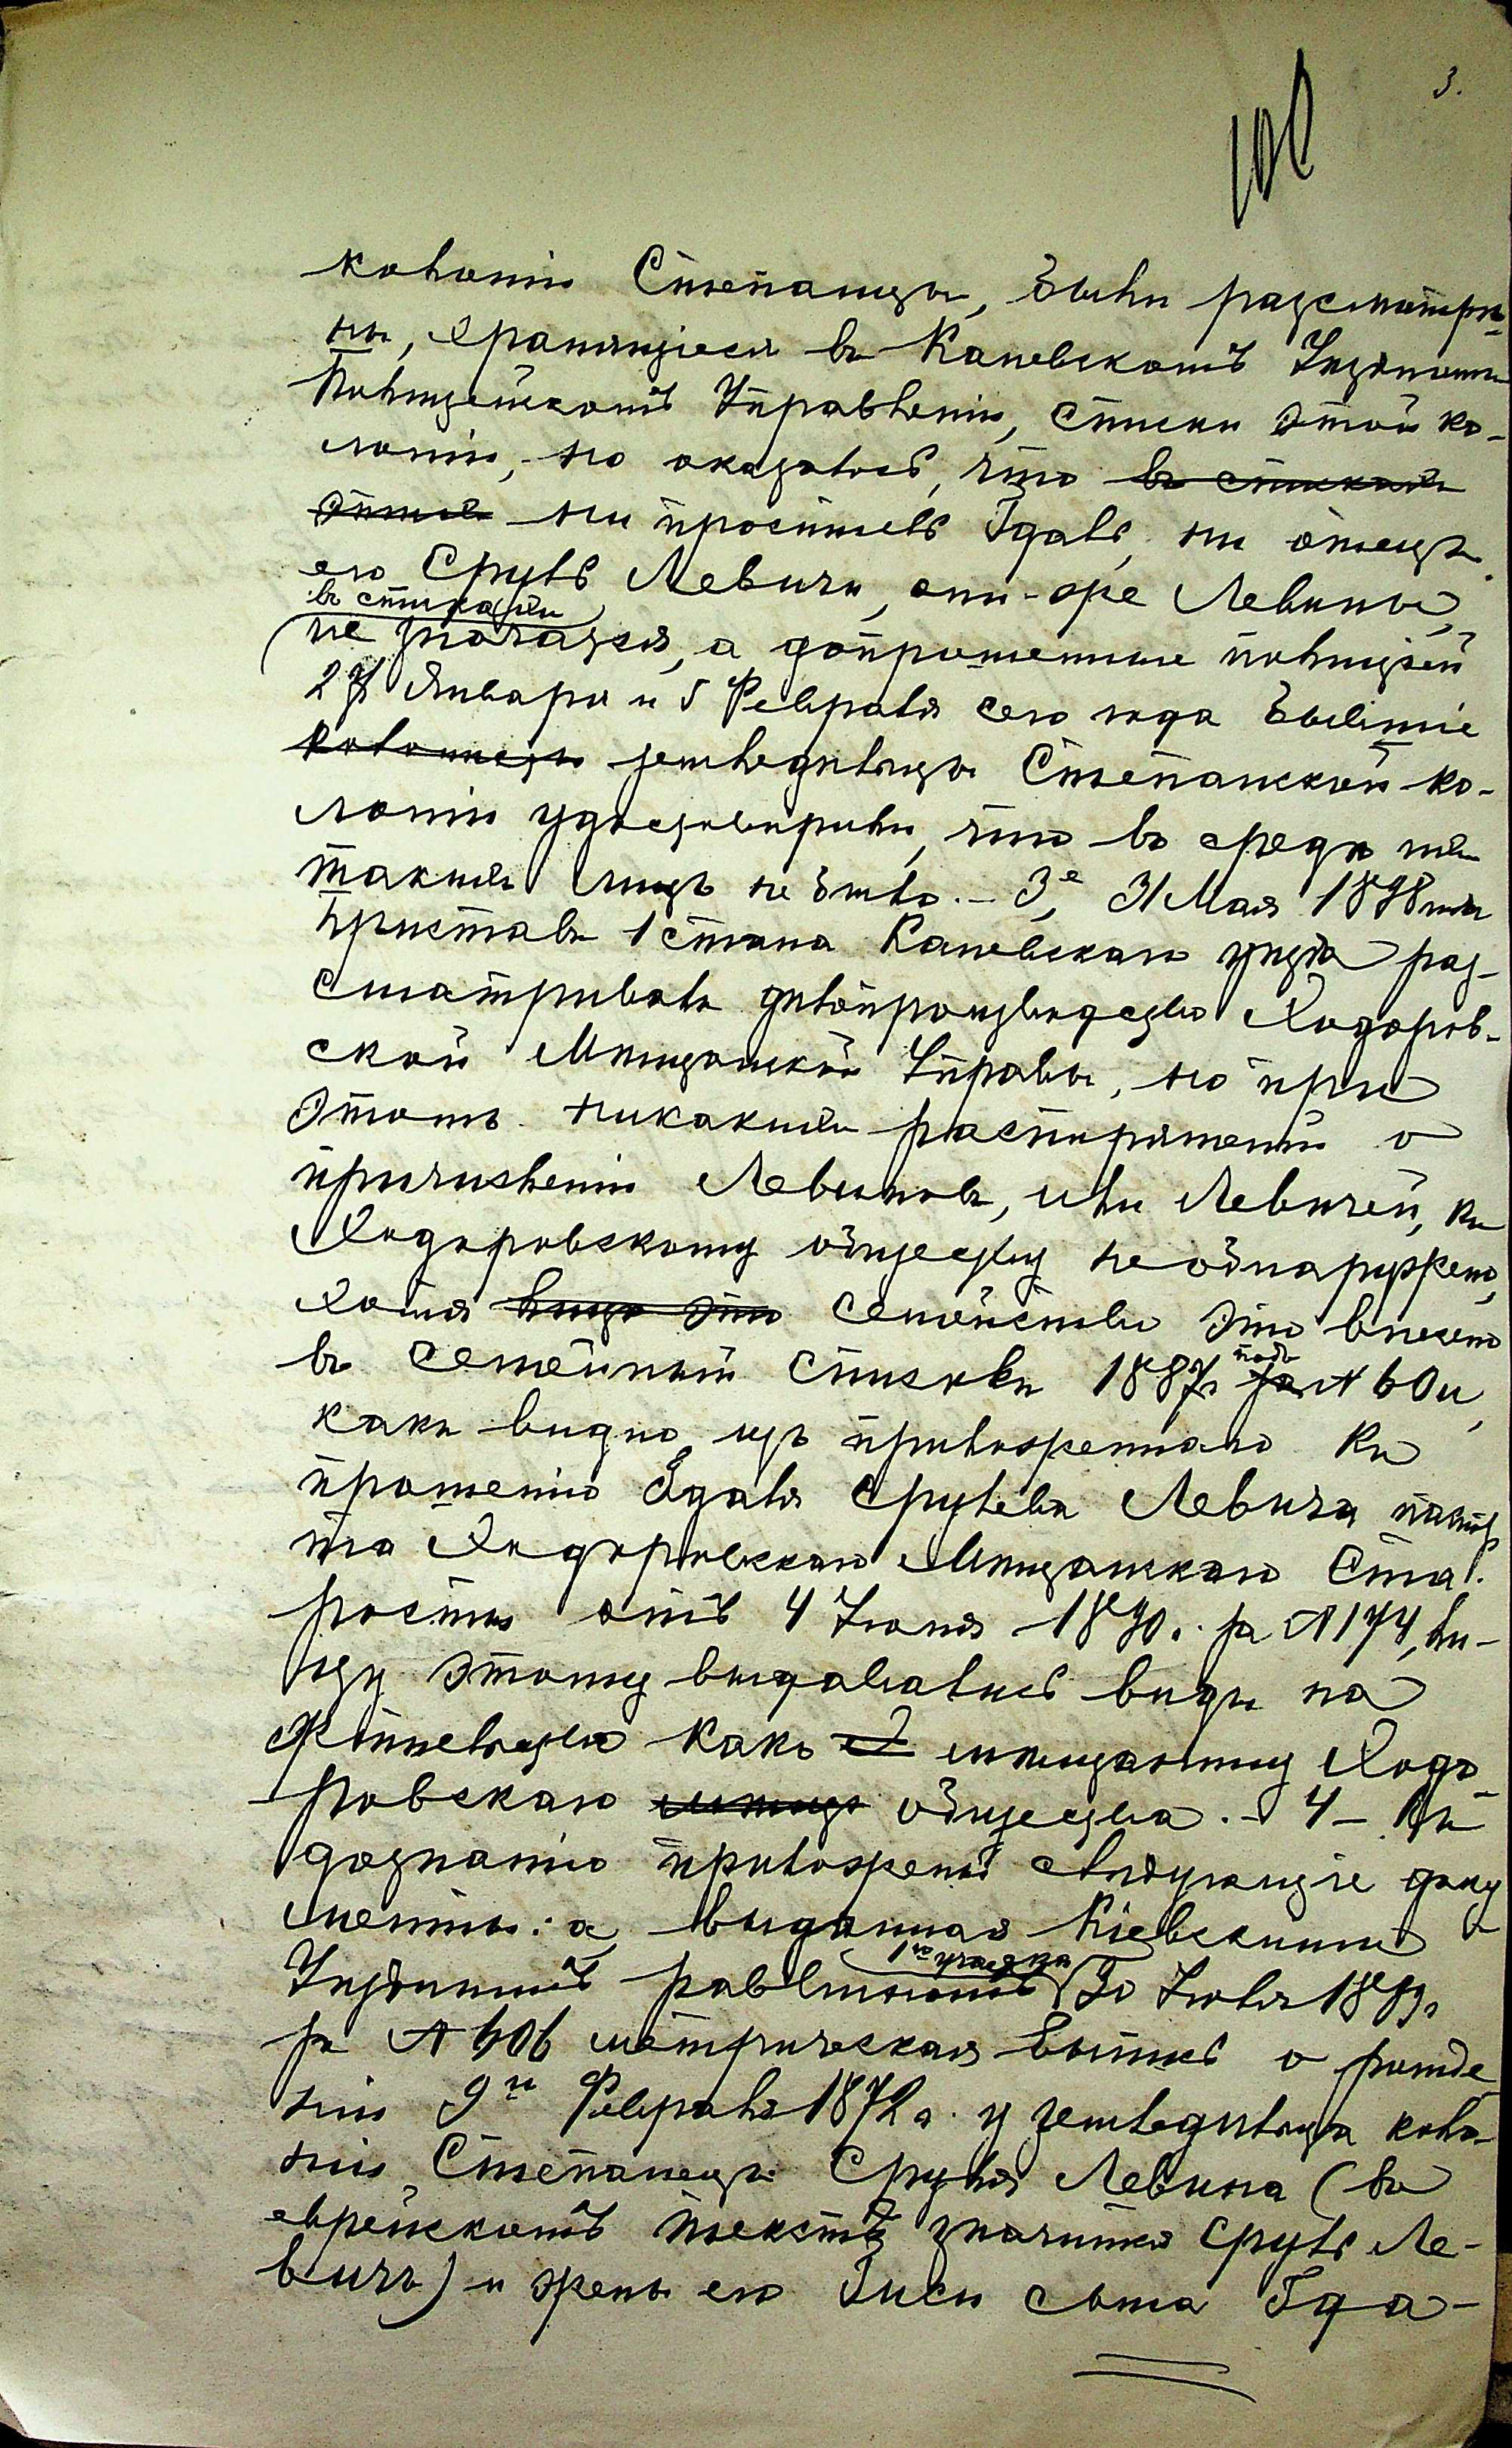 3.
100
колонiи Степанцы, были разсмотрѣ-
ны, хранящiеся въ Каневскомъ Уѣздномъ
Полицейскомъ Управленiи, списки этой ко-
лонiи, но оказалось, что въ спискахъ
этихъ ни проситель Идаль, ни отецъ
его Сруль Левичъ, они-же Левины,
въ спискахъ
не значатся, а допрошенные полицiей
27 Января и 5 Февраля сего года бывшiе
колонисты земледѣльцы Степанской ко-
лонiи удостовѣрили, что въ средѣ ихъ
такихъ лицъ не было. - 3е, 31 Мая 1898 года
Приставъ 1 стана Каневскаго уѣзда раз-
сматривалъ дѣлопроизводство Ходоров-
ской Мѣщанской Управы, но при
этомъ никакихъ распоряженiй о
причисленiи Левиновъ, или Левичей, къ
Ходоровскому обществу не обнаружено,
хотя лицо это семейство это внесено
подъ
въ семейный списокъ 1887г. за № 60 и,
какъ видно изъ приложеннаго къ
прошенiю Идаля Срулева Левича паспор-
та Ходоровскаго Мѣщанскаго Ста-
росты отъ 4 Iюня 1890г. за № 174, ли-
цу этому выдавались виды на
жительство какъ мѣщанину Ходо-
ровскаго мѣщ. общества. - 4 - Къ
дознанiю приложены слѣдующiе доку
менты: а, выданная Кiевскимъ
1го участка
Уѣзднымъ раввиномъ 30 Iюля 1889г.
за № 606 метрическая выпись о рожде
нiи 9го Февраля 1872г. у земледѣльца коло-
нiи Степанецъ Сруля Левина (въ
еврейскомъ текстѣ значится Сруль Ле-
вичъ) и жены его сына Ида-